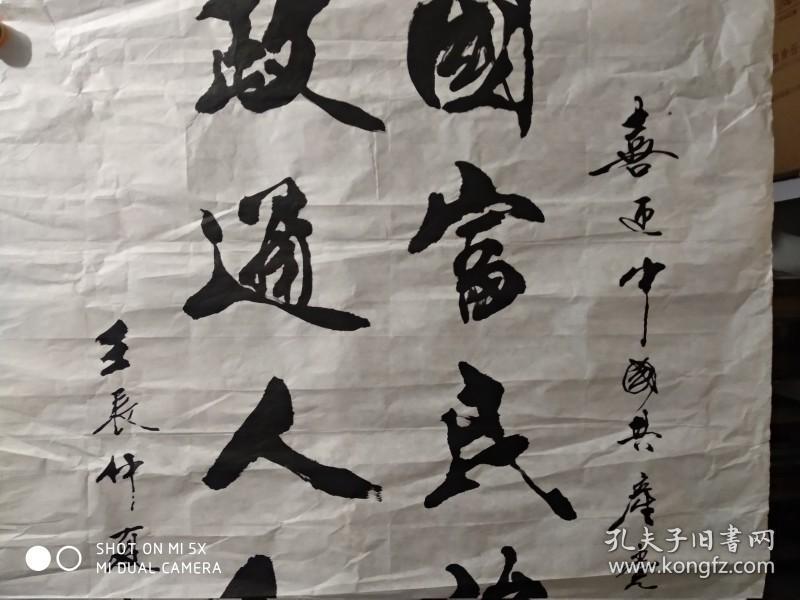 喜迎中國共產党
國富民
政通人
壬辰仲夏
SHOT ON MI 5X
MI DUAL CAMERA
孔夫子旧書网
www.kongfz.com